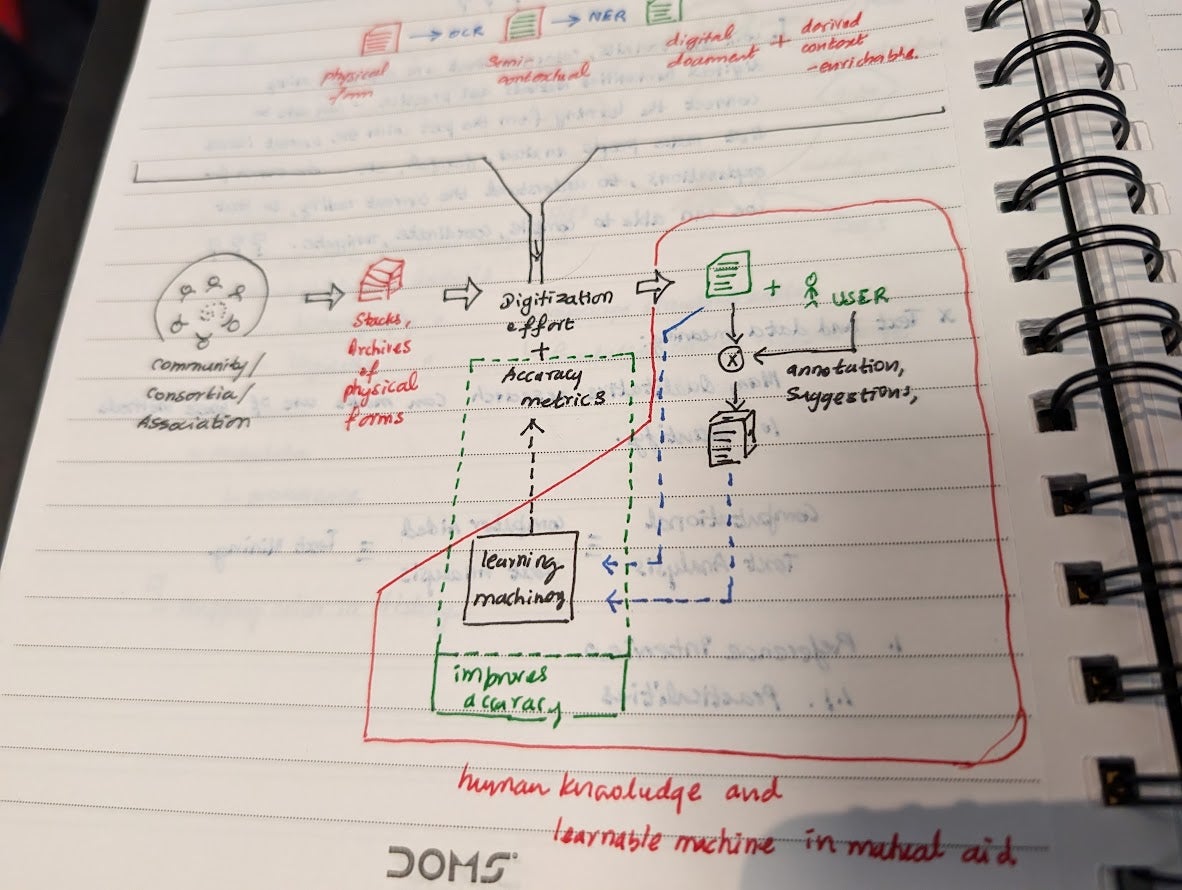 OCR
NER
physical
form
Semi-
contextual
digital
document
+
derived
context
-enrichable.
Community/
Consortia/
Association
Stacks,
Archives
of
physical
forms
Digitization
effort
+
Accuracy
metrics
+
USER
X
annotation,
Suggestions,
learning
machinery
improves
accuracy
human knowludge and
learnable machine in mutual aid.
DOMS